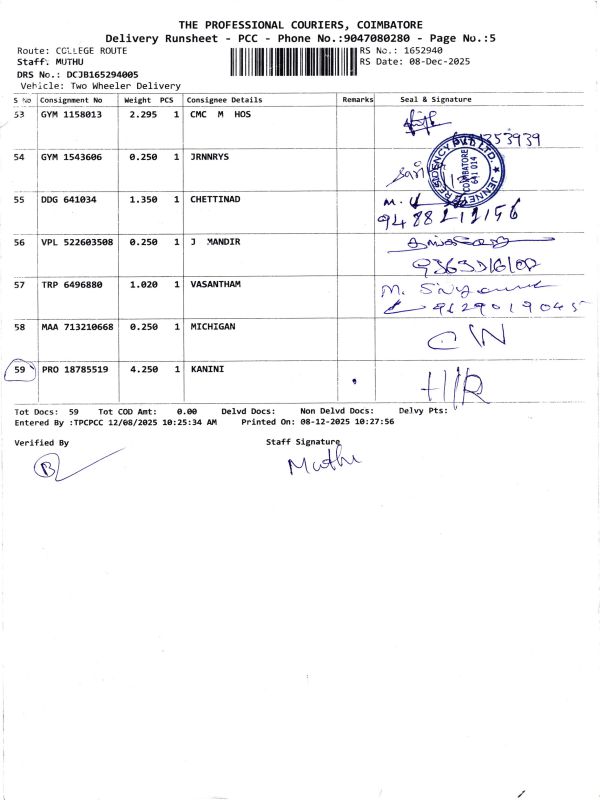 THE PROFESSIONAL COURIERS, COIMBATORE
Delivery Runsheet - PCC - Phone No.:9047080280 - Page No.:5
Route: COLLEGE ROUTE RS No.: 1652940
Staff: MUTHU RS Date: 08-Dec-2025
DRS No.: DCJB165294005
Vehicle: Two Wheeler Delivery
S No Consignment No Weight PCS Consignee Details Remarks Seal & Signature
53 GYM 1158013 2.295 1 CMC M HOS
54 GYM 1543606 0.250 1 JRNNRYS
RESIDENCY PVT LTD. ★ JENNEY
COIMBATORE
641 014
55 DDG 641034 1.350 1 CHETTINAD
9488212156
56 VPL 522603508 0.250 1 J MANDIR
57 TRP 6496880 1.020 1 VASANTHAM M.
9629019045
58 MAA 713210668 0.250 1 MICHIGAN
59 PRO 18785519 4.250 1 KANINI H/R
Tot Docs: 59 Tot COD Amt: 0.00 Delvd Docs: Non Delvd Docs: Delvy Pts:
Entered By :TPCPCC 12/08/2025 10:25:34 AM Printed On: 08-12-2025 10:27:56
Verified By Staff Signature
B Muthu